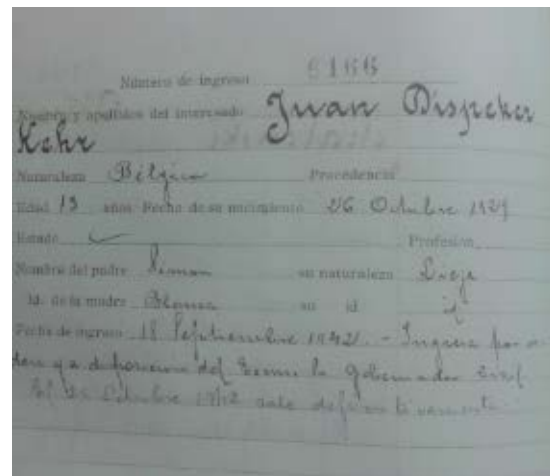 Número de ingreso 6166
Nombre y apellidos del interesado Juan Dispeker
Kehr
Naturaleza Bélgica Procedencia
Edad 13 años Fecha de su nacimiento 26 Octubre 1929
Estado Profesión
Nombre del padre Simon su naturaleza Lieja
Id. de la madre Blanca su id. id
Fecha de ingreso 18 Septiembre 1942. - Ingresa por or
den y a disposicion del Excmo Sr Gobernador Civil
El Octubre 1942 sale definitivamente.